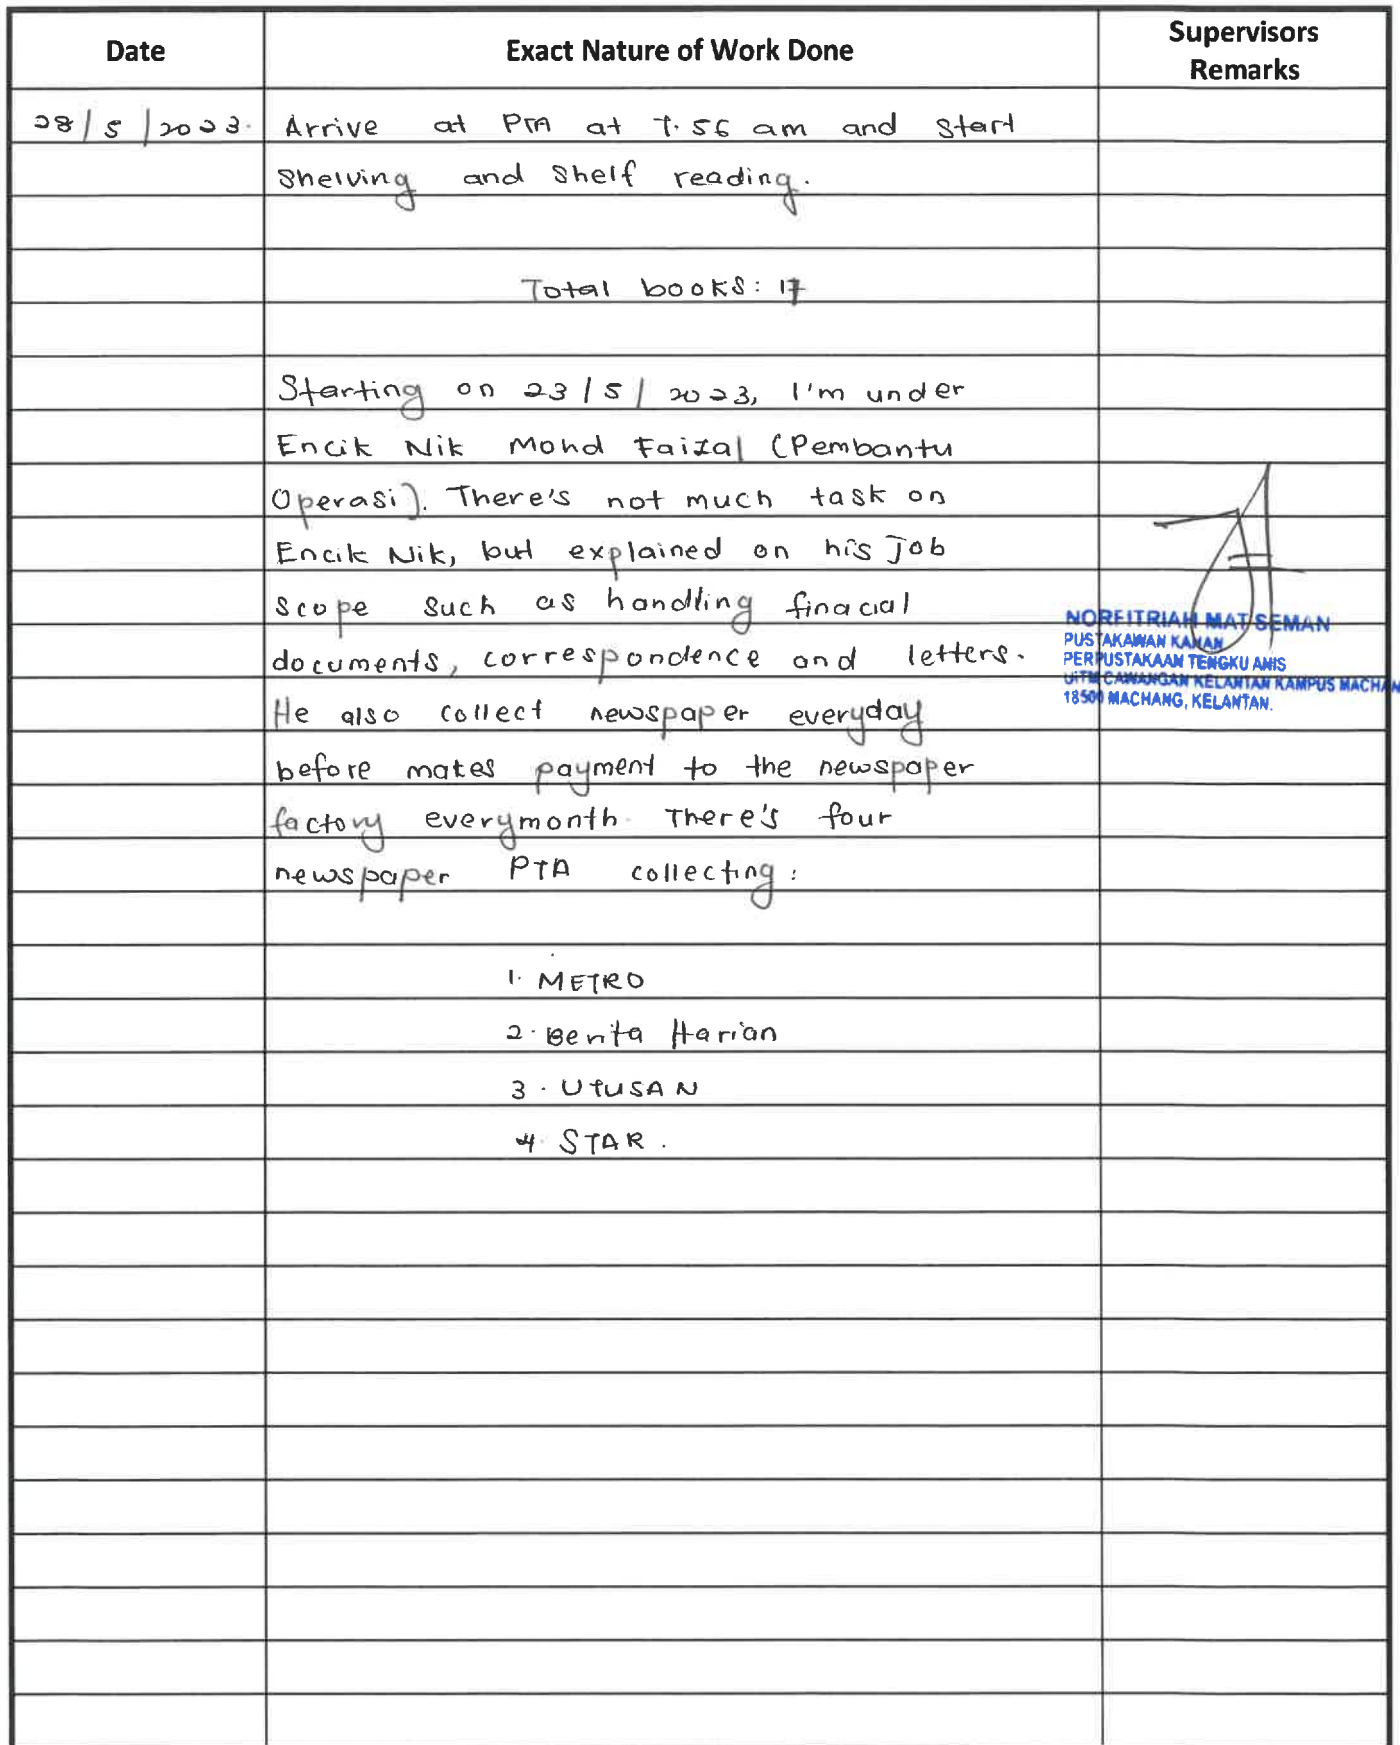 Date Exact Nature of Work Done Supervisors Remarks
28/5/2023. Arrive at PTA at 7.56 am and start
shelving and shelf reading.
Total books: 17
Starting on 23/5/2023, I'm under
Encik Nik Mohd Faizal (Pembantu
Operasi). There's not much task on
Encik Nik, but explained on his Job
scope such as handling finacial
documents, correspondence and letters.
He also collect newspaper everyday
before makes payment to the newspaper
factory everymonth. There's four
newspaper PTA collecting:
1. METRO
2. Berita Harian
3. UTUSAN
4. STAR.
NORFITRIAH MAT SEMAN
PUSTAKAWAN KANAN
PERPUSTAKAAN TENGKU ANIS
UITM CAWANGAN KELANTAN KAMPUS MACHAN
18500 MACHANG, KELANTAN.